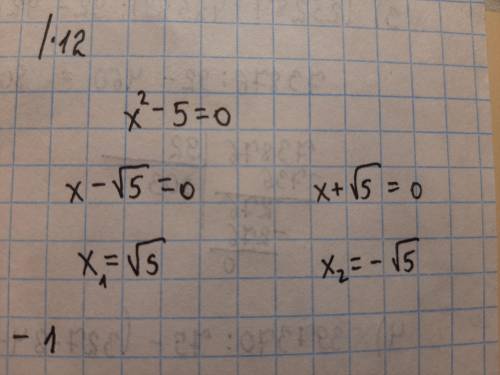 1.12
x² - 5 = 0
x - √5 = 0    x + √5 = 0
x₁ = √5    x₂ = - √5
- 1